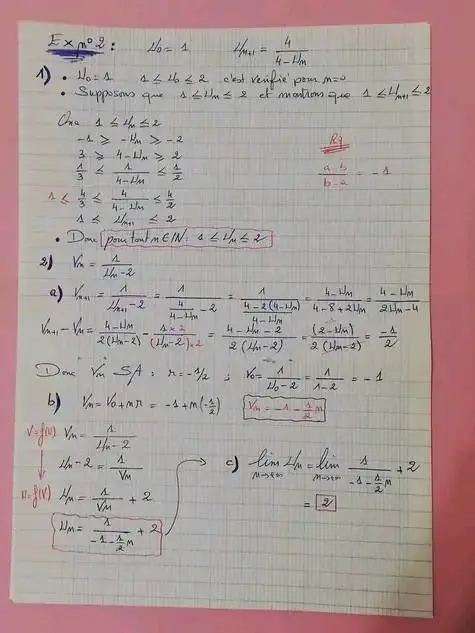 Ex n° 2 : U₀ = 1 Uₙ₊₁ = 4/(4-Uₙ)
1) • U₀ = 1 1 ≤ U₀ ≤ 2 c'est vérifié pour n=0
• Supposons que 1 ≤ Uₙ ≤ 2 et montrons que 1 ≤ Uₙ₊₁ ≤ 2
On a 1 ≤ Uₙ ≤ 2
-1 ≥ -Uₙ ≥ -2
Rq
3 ≥ 4-Uₙ ≥ 2
(a-b)/(b-a) = -1
1/3 ≤ 1/(4-Uₙ) ≤ 1/2
1 ≤ 4/3 ≤ 4/(4-Uₙ) ≤ 4/2
1 ≤ Uₙ₊₁ ≤ 2
• Donc pour tout n∈IN : 1 ≤ Uₙ ≤ 2
2) Vₙ = 1/(Uₙ-2)
a) Vₙ₊₁ = 1/(Uₙ₊₁-2) = 1/(4/(4-Uₙ) - 2) = 1/((4-2(4-Uₙ))/(4-Uₙ)) = (4-Uₙ)/(4-8+2Uₙ) = (4-Uₙ)/(2Uₙ-4)
Vₙ₊₁-Vₙ = (4-Uₙ)/(2(Uₙ-2)) - (1×2)/((Uₙ-2)×2) = (4-Uₙ-2)/(2(Uₙ-2)) = (2-Uₙ)/(2(Uₙ-2)) = -1/2
Donc Vₙ SA : r = -1/2 ; V₀ = 1/(U₀-2) = 1/(1-2) = -1
b) Vₙ = V₀ + nr = -1 + n(-1/2) Vₙ = -1 - 1/2 n
V=f(U) Vₙ = 1/(Uₙ-2)
c) lim n→+∞ Uₙ = lim n→+∞ 1/(-1-1/2 n) + 2
Uₙ-2 = 1/Vₙ
= 2
U=f(V) Uₙ = 1/Vₙ + 2
Uₙ = 1/(-1-1/2 n) + 2